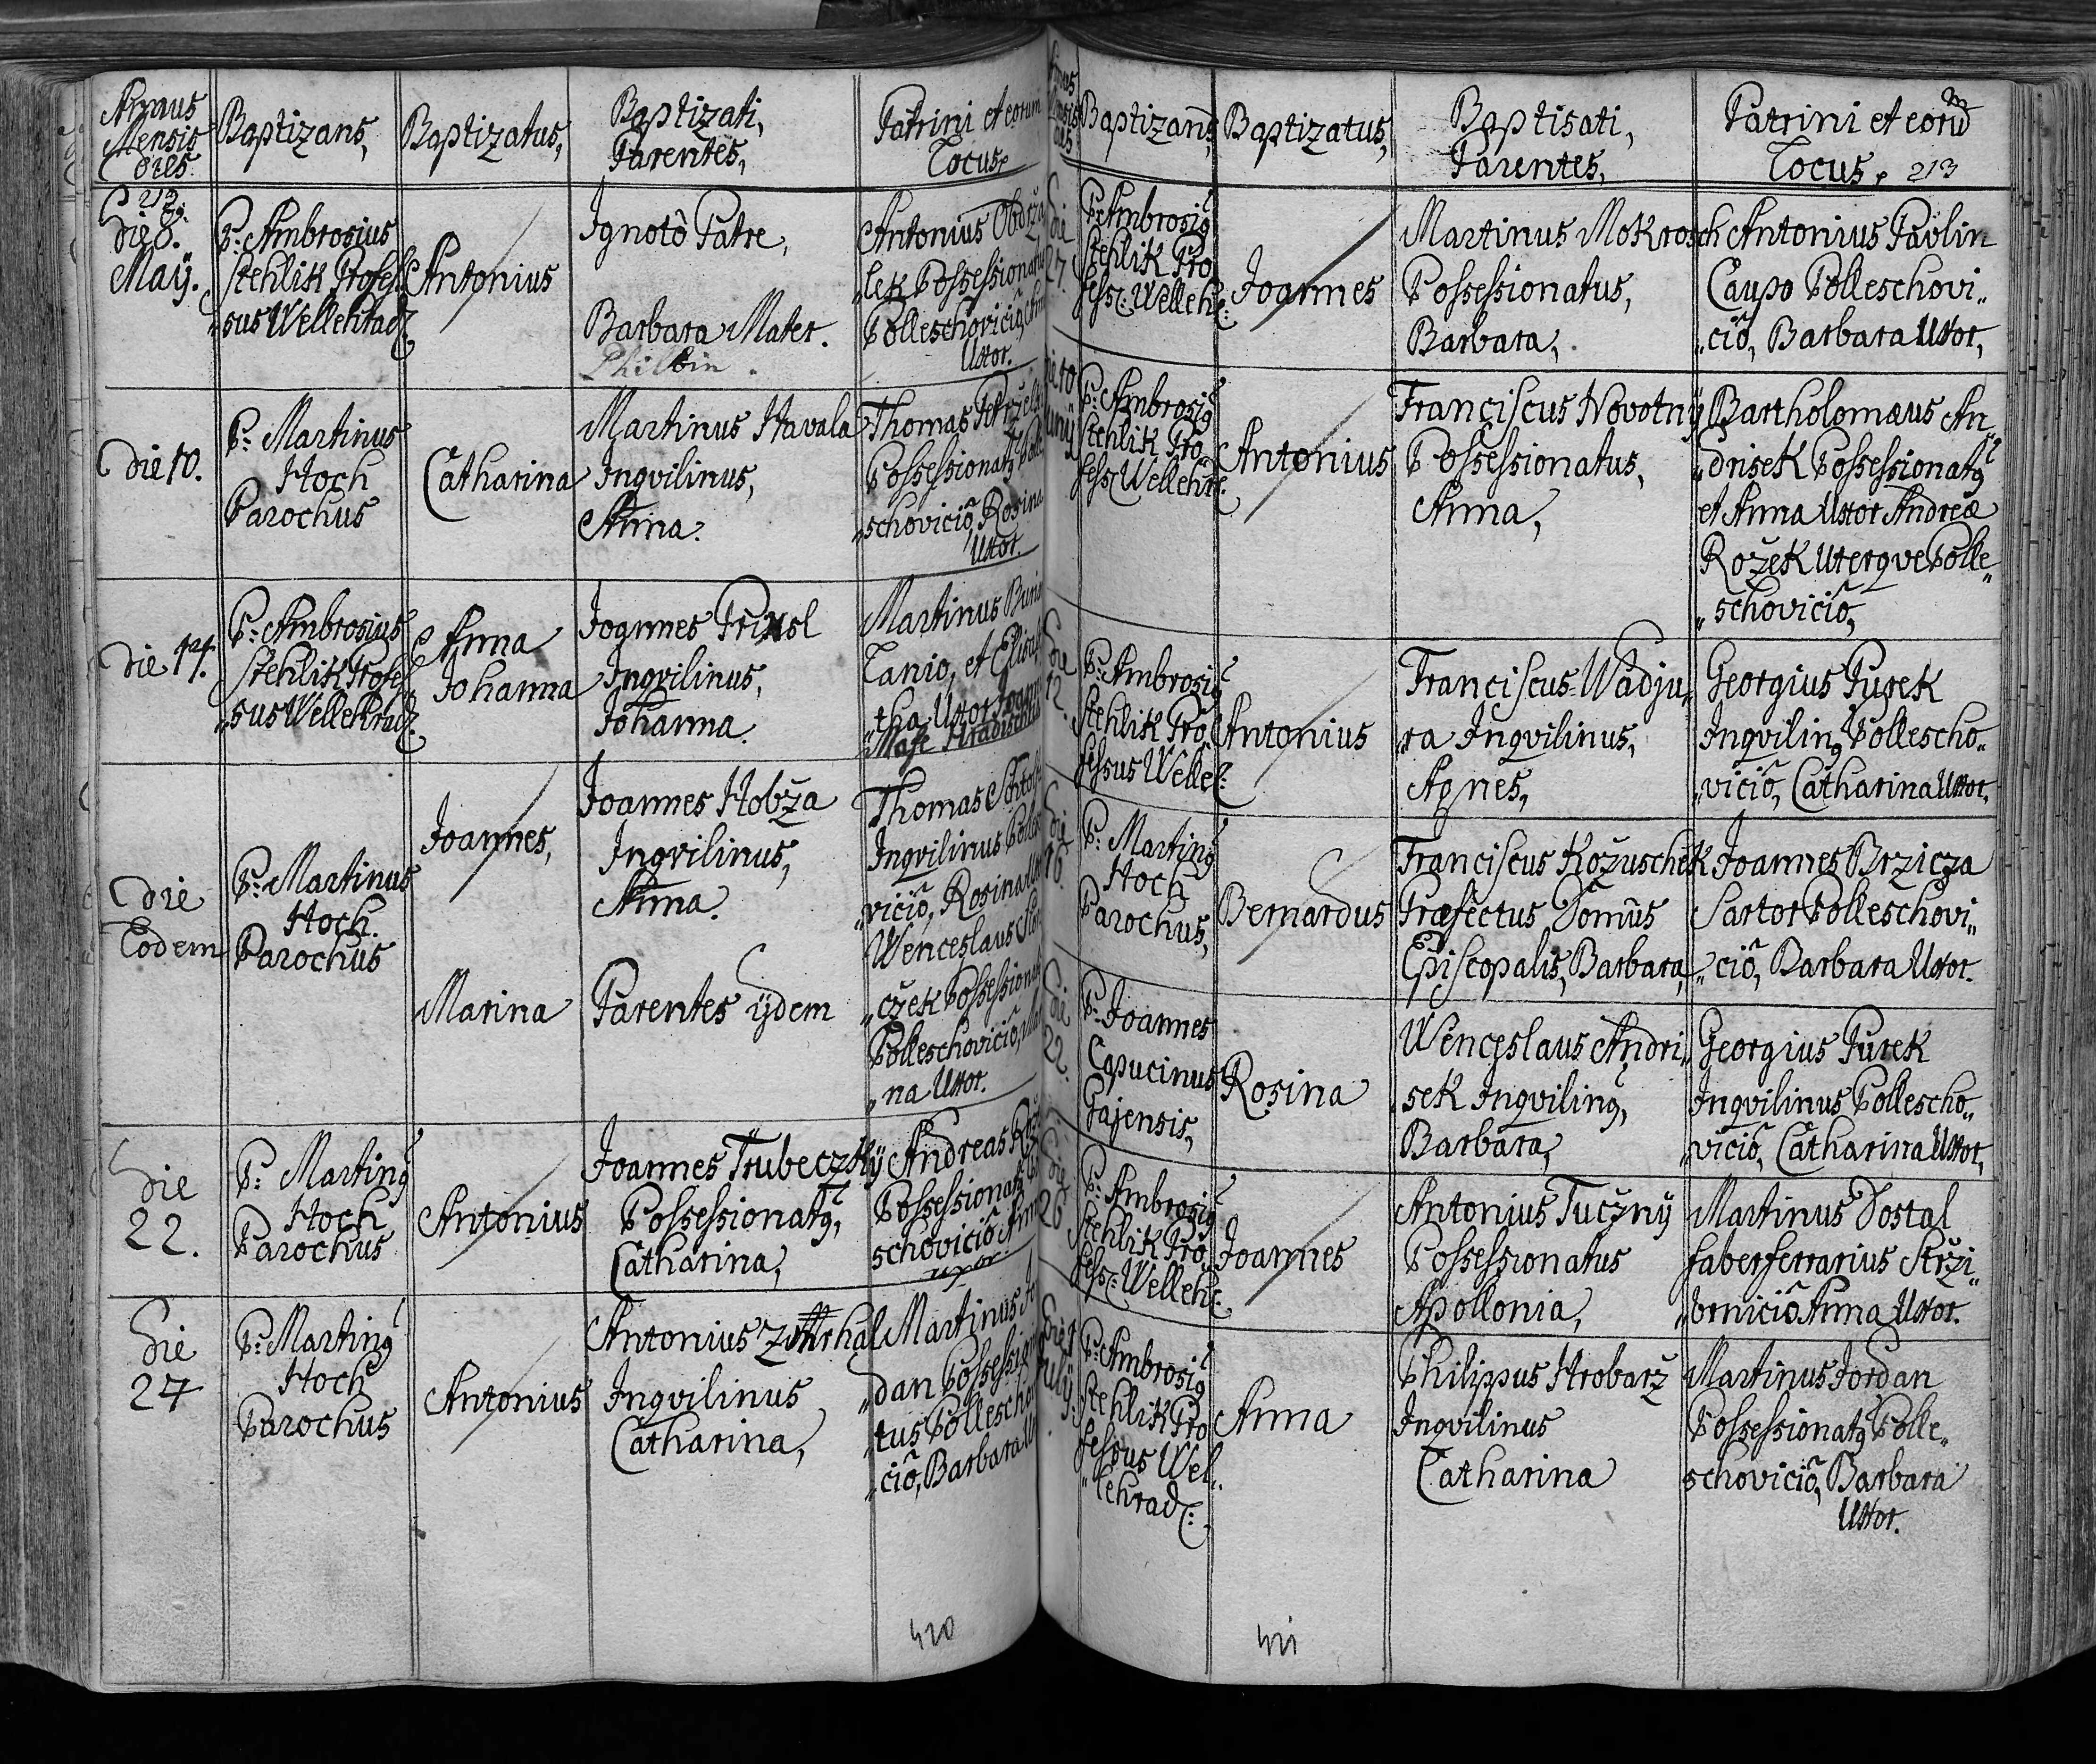 Annus
Mensis
Dies.
Baptizans,
Baptizatus,
Baptizati,
Parentes,
Patrini et eorum
Locus,
213.
Die 8.
Maÿ.
P: Ambrosius
Stehlik Profes„
„sus Wellehrad:
Antonius
Ignotô Patre,
Barbara Mater.
Antonius
„lek Possessionatus
Polleschoviciô,
Uxor.
Die 10.
P: Martinus
Hoch
Parochus
Catharina
Martinus Havala
Inqvilinus,
Anna.
Thomas
Possessionatq
„schoviciô, Rosina
Uxor.
Die 14.
P: Ambrosius
Stehlik Profes„
„sus Wellehrad:
Anna
Johanna
Joannes
Inqvilinus,
Johanna.
Martinus
Lanio, et Elisa„
„tha Uxor
Die
Eodem
P: Martinus
Hoch.
Parochus
Joannes,
Joannes Hobža
Inqvilinus,
Anna.
Thomas
Inqvilinus
viciô, Rosina
Marina
Parentes ÿdem
Wenceslaus
„czek Possessionat
Polleschoviciô,
„na Uxor.
Die
22.
P: Martinq
Hoch
Parochus
Antonius
Joannes Trubeczkÿ
Possessionatq,
Catharina,
Andreas
Possessionatq
schoviciô
uxor
Die
27
P: Martinq
Hoch
Parochus
Antonius
Antonius
Inqvilinus
Catharina,
Martinus
„dan
„tus
„ciô, Barbara
420
Baptizans,
Baptizatus,
Baptisati,
Parentes,
Patrini et eorum
Locus, 213
Die
27.
P: Ambrosiq
Stehlik Pro„
fess: Welleh:
Joannes
Martinus Mokrosch
Possessionatus,
Barbara,
Antonius Pavlin
Caupo Polleschovi„
„ciô, Barbara Uxor,
P: Ambrosiq
Stehlik Pro„
fess: Wellehr:
Antonius
Franciscus Novotnÿ
Possessionatus,
Anna,
Bartholomæus An„
„drisek Possessionatq
et Anna Uxor Andreæ
Rožek Uterqve Polle„
„schoviciô,
Die
12.
P: Ambrosiq
Stehlik Pro„
fessus Welle:
Antonius
Franciscus Wadju„
„ra Inqvilinus,
Agnes,
Georgius Jurek
Inqvilinq Pollescho„
„viciô, Catharina Uxor,
Die
16.
P: Martinq
Hoch
Parochus,
Bernardus
Franciscus Kožuschek
Præfectus Domûs
Episcopalis, Barbara,
Joannes Brzicza
Sartor Polleschovi„
„ciô, Barbara Uxor.
Die
22.
P: Joannes
Capucinus
Gajensis,
Rosina
Wenceslaus Andri„
sek Inqvilinq,
Barbara,
Georgius Jurek
Inqvilinus Pollescho„
„viciô, Catharina Uxor,
Die
26
P: Ambrosiq
Stehlik Pro„
fess: Welleh:
Joannes
Antonius Tucžnÿ
Possessionatus
Apollonia,
Martinus Dostal
faber ferrarius Strži„
„brniciô Anna Uxor.
P: Ambrosiq
Stehlik Pro„
fessus Wel„
„lehrad:
Anna
Philippus Hrobarž
Inqvilinus
Catharina
Martinus Jordan
Possessionatq Polle„
schoviciô, Barbara
Uxor.
421